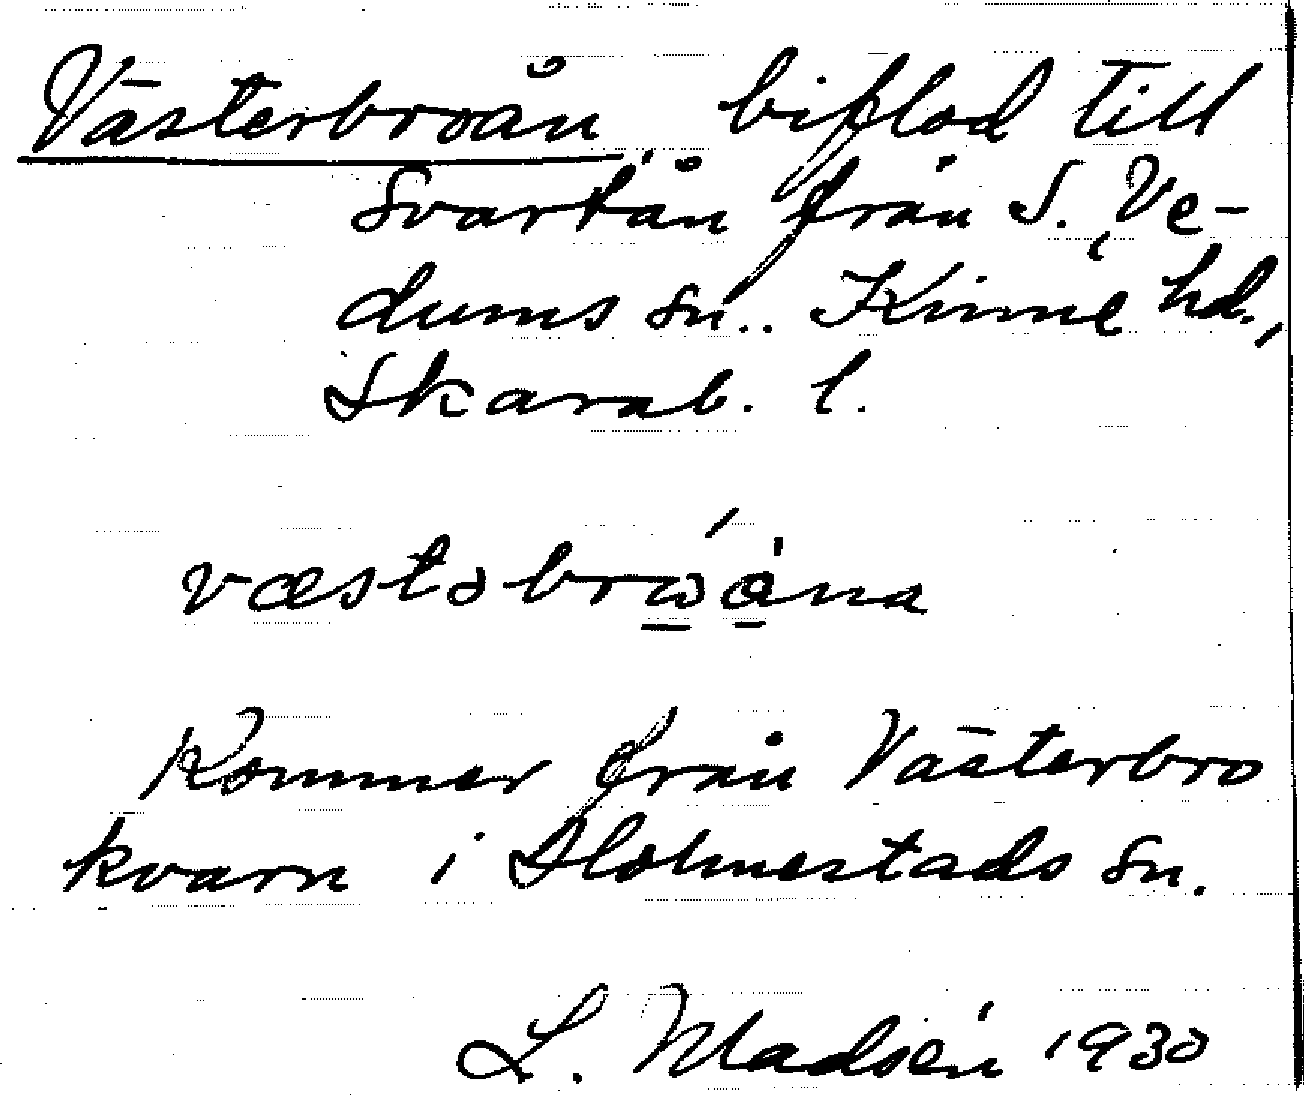 Västerbroån, biflod till
Svartån från S. Ve-
dums sn., Kinne hd.,
Skarab. l.
væstəbrωåna
Kommer från Västerbro
kvarn i Holmestads sn.
L. Madsén 1930